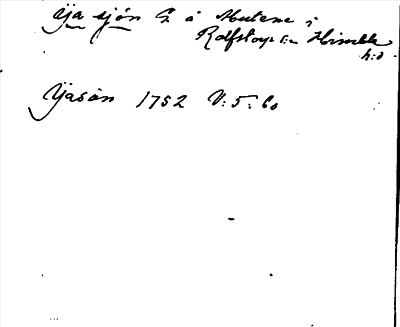 Yja sjön å Mutene i
Rolfstorps sn Himble
h:d.
Yasön 1752 V: 5: 60